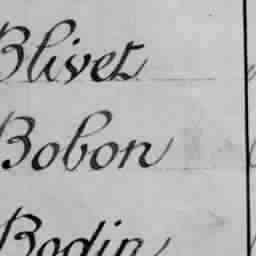 Blivet
Bobon
Bodin